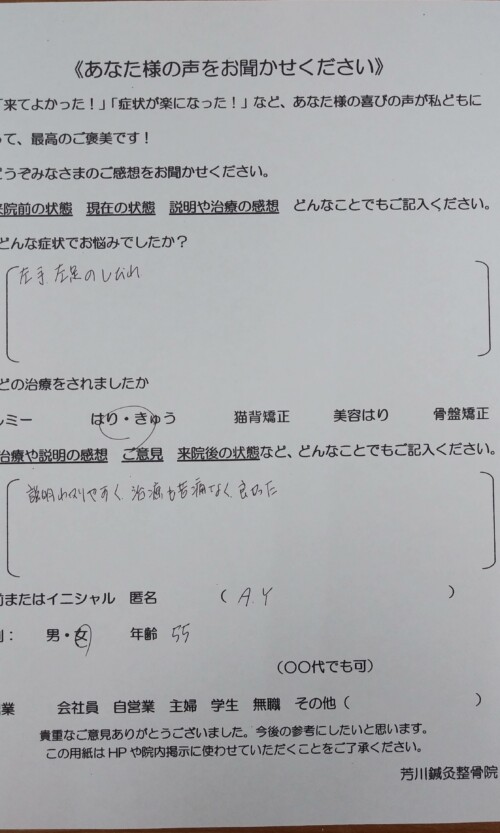 《あなた様の声をお聞かせください》
「来てよかった！」「症状が楽になった！」など、あなた様の喜びの声が私どもに
って、最高のご褒美です！
どうぞみなさまのご感想をお聞かせください。
来院前の状態 現在の状態 説明や治療の感想 どんなことでもご記入ください。
どんな症状でお悩みでしたか？
左手 左足のしびれ
どの治療をされましたか
ルミー はり・きゅう 猫背矯正 美容はり 骨盤矯正
治療や説明の感想 ご意見 来院後の状態など、どんなことでもご記入ください。
説明わかりやすく 治療も苦痛なく良かった
前またはイニシャル 匿名 （ A.Y ）
別： 男・女 年齢 55
（〇〇代でも可）
業 会社員 自営業 主婦 学生 無職 その他（ ）
貴重なご意見ありがとうございました。今後の参考にしたいと思います。
この用紙はHPや院内掲示に使わせていただくことをご了承ください。
芳川鍼灸整骨院